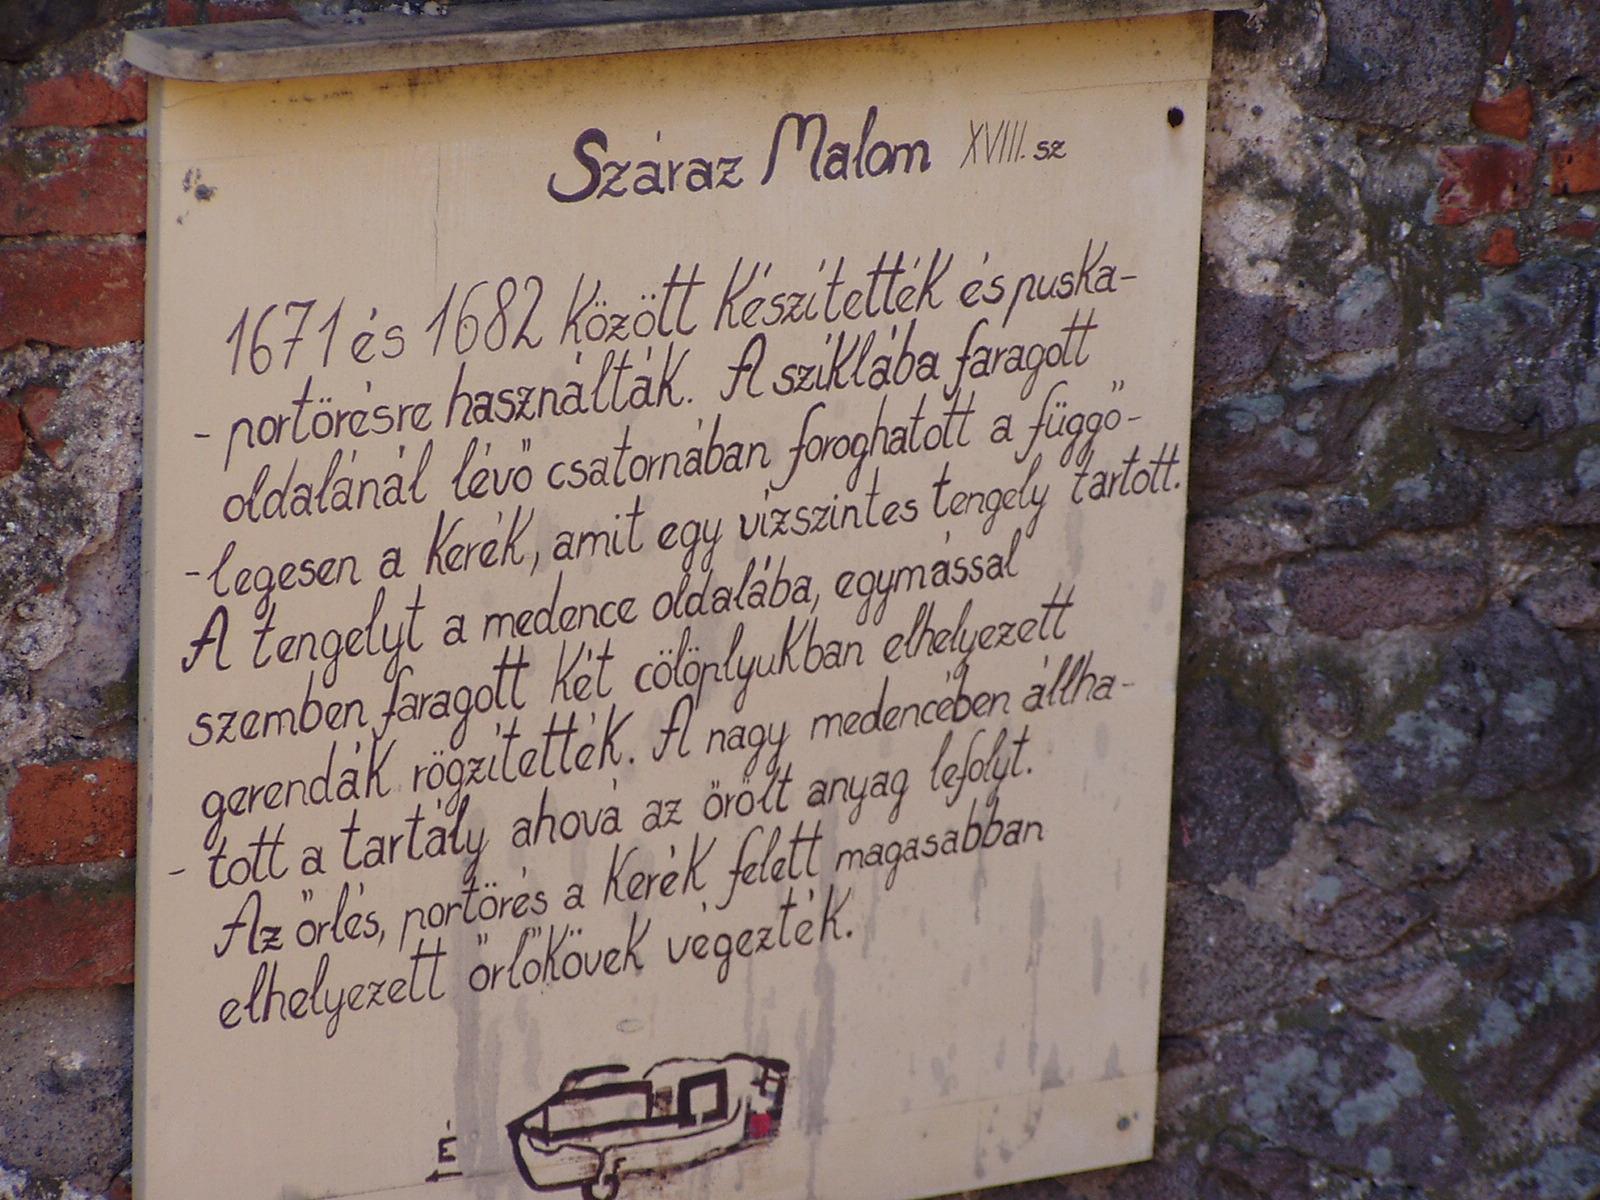 Száraz Malom XVIII. sz
1671 és 1682 között készítették és puska-
- portörésre használták. A sziklába faragott
oldalánál lévő csatornában foroghatott a függő-
- legesen a kerék, amit egy vizszintes tengely tartott.
A tengelyt a medence oldalába, egymással
szemben faragott két cölöplyukban elhelyezett
gerendák rögzítették. A nagy medencében állha-
- tott a tartály ahová az őrölt anyag lefolyt.
Az őrlés, portörés a kerék felett magasabban
elhelyezett őrlőkövek végezték.
É